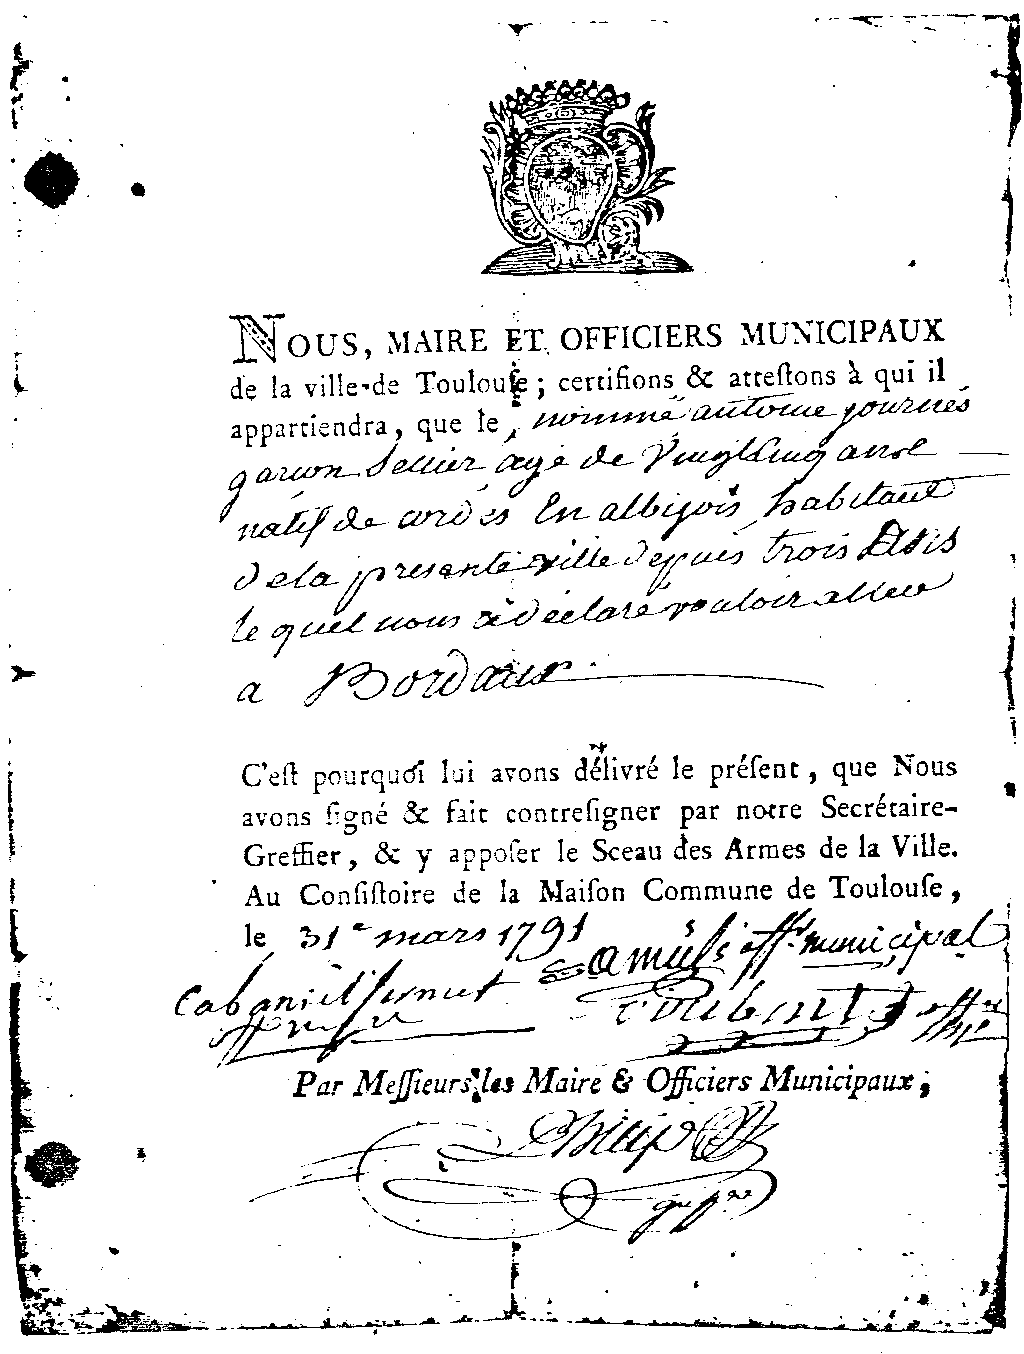 NOUS, MAIRE ET OFFICIERS MUNICIPAUX
de la ville de Toulouſe ; certifions & atteſtons à qui il
appartiendra, que le nommé antoine journès
garson Sellier agé de Vingt Cinq ans
natif de cordes En albigois habitant
de la presente ville depuis trois
le quel nous a déclaré vouloir aller
a Bordaux.
C'eſt pourquoi lui avons délivré le préſent, que Nous
avons ſigné & fait contreſigner par notre Secrétaire-
Greffier, & y appoſer le Sceau des Armes de la Ville.
Au Conſiſtoire de la Maiſon Commune de Toulouſe,
le 31e mars 1791
off. municipal
Par Meſſieurs les Maire & Officiers Municipaux,